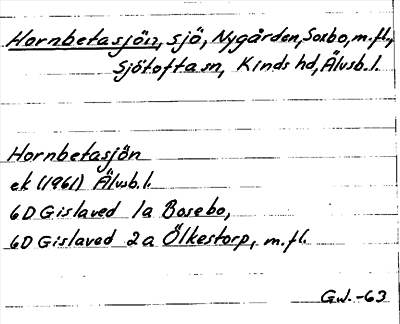 Hornbetasjön, sjö, Nygården, Soxbo, m.fl.,
Sjötofta sn, Kinds hd, Älvsb.l.
Hornbetasjön
ek (1961) Älvsb.l.
6D Gislaved 1a Bosebo,
6D Gislaved 2a Ölkestorp, m.fl.
Gw. -63